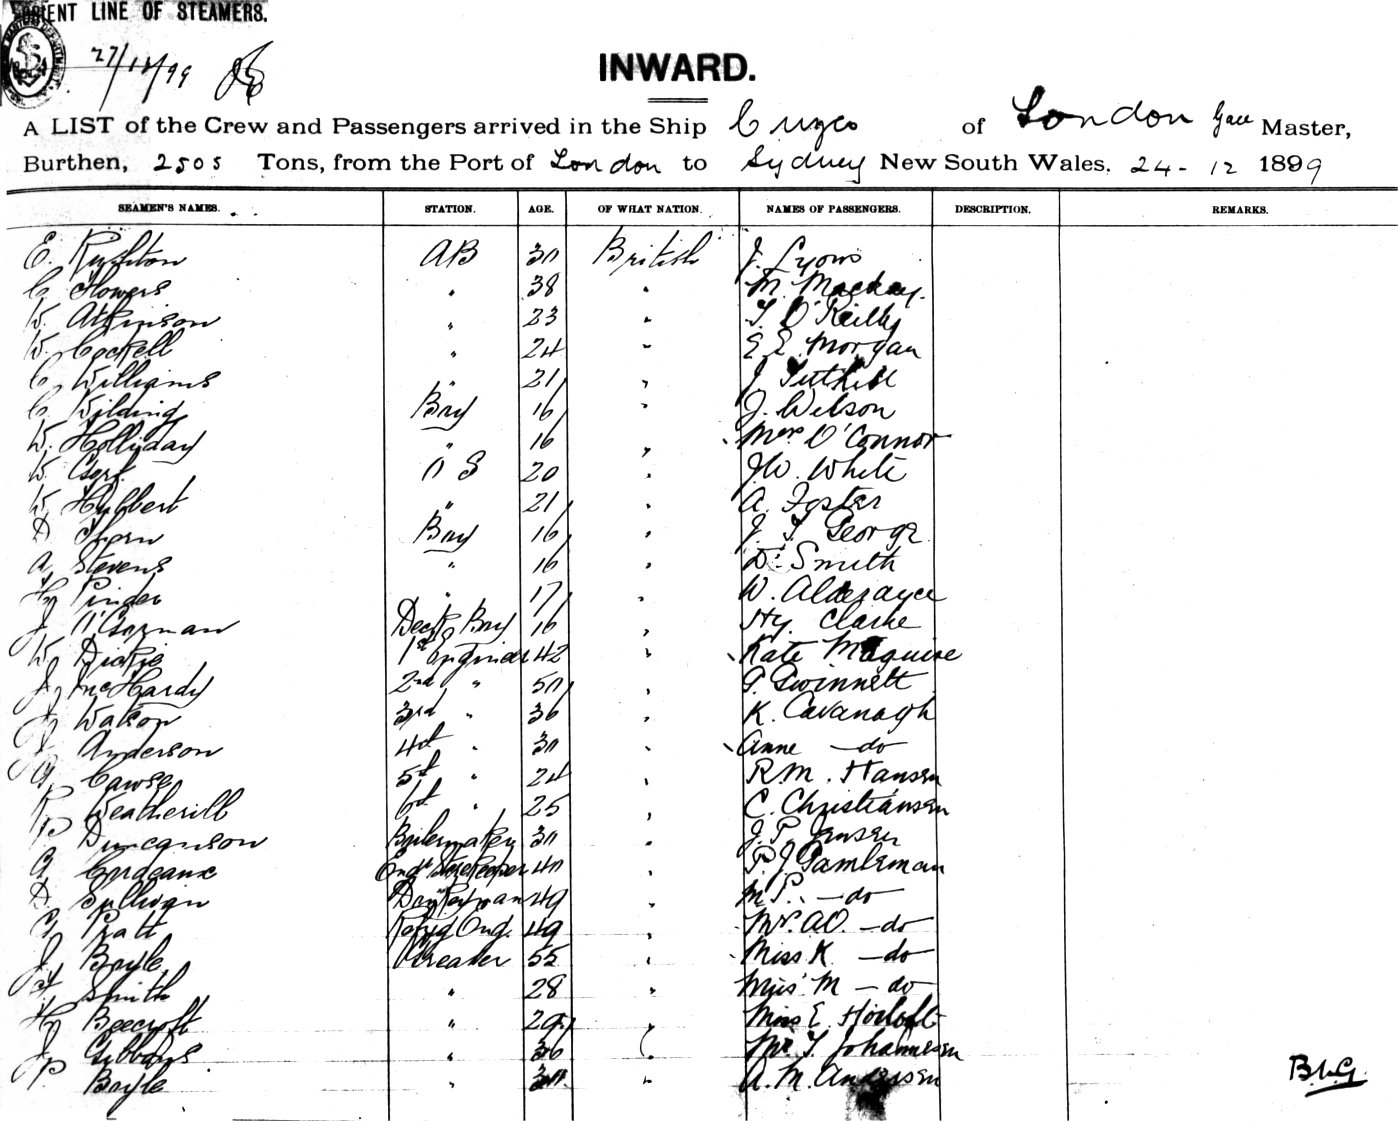 ORIENT LINE OF STEAMERS.
27/12/99
INWARD.
A LIST of the Crew and Passengers arrived in the Ship Cuzco of London Master,
Burthen, 2505 Tons, from the Port of London to Sydney New South Wales. 24-12 1899
SEAMEN'S NAMES. STATION. AGE. OF WHAT NATION. NAMES OF PASSENGERS. DESCRIPTION. REMARKS.
E. AB 30 British J. Lyons
C. Flowers " 38 " M. Mackay.
W. Atkinson " 23 " T. O'Reilly
W. Cockell " 24 " E E Morgan
C. Williams " 21 " J Tuthill
C. Wilding Boy 16 " J. Wilson
W. Holliday " 16 " Mrs O'Connor
W. O S 20 " J.W. White
W. Hubbert " 21 " A. Foster
D Thorn Boy 16 " J. T. George
A Stevens " 16 " D. Smith
Hy Pinder " 17 " W.
J O'Gorman Deck Boy 16 " Hy. Clarke
W. Dickie 1st Engineer 42 " Kate Maguire
J McHardy 2nd " 50 " G. Gwinnett
J Watson 3rd " 36 " K. Cavanagh
J Anderson 4th " 30 " Anne — do
G Cawse 5th " 24 " R.M. Hansen
R Weatherill 6th " 25 " C. Christiansen
P Duncanson Boilermaker 30 " J. P. Jensen
G Cordeaux Engr Storekeeper 40 " P. J.
D. Sullivan 49 " M P. — do
G Pratt Refrig Eng. 49 " Mr. A.O. — do
J Boyle Greaser 55 " Miss K — do
F Smith " 28 " Miss M — do
Hy Beecroft " " Miss E
J Gibbons " 36 " Mr. T. Johannesen
P Boyle " 30 " A. M. Andersen